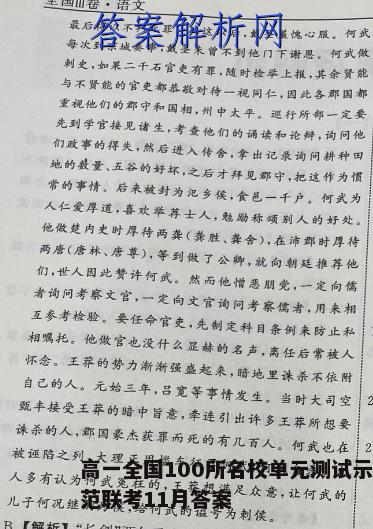 全国Ⅲ卷·语文
答案解析网
愧心服。何武
每次到京城奏事,戴圣未曾不到他门下谢恩。何武做
刺史,如果二千石官吏有罪,随时检举上报,其余贤能
与不贤能的官吏都恭敬对待一视同仁,因此各郡国都
重视他们的郡守和国相,州中太平。巡行所部一定要
先到学官接见诸生,考查他们的诵读和论辩,询问他
们政事的得失,然后进入传舍,拿出记录询问耕种田
地的数量、五谷的好坏,之后才拜见郡守,把这作为惯
常的事情。后来被封为氾乡侯,食邑一千户。何武为
人仁爱厚道,喜欢举荐士人,勉励称颂别人的好处。
他做楚内史时厚待两龚(龚胜、龚舍),在沛郡时厚待
两唐(唐林、唐尊),等到做了公卿,就向朝廷推荐他
们,世人因此赞许何武。然而他憎恶朋党,一定向儒
者询问考察文官,一定向文官询问考察儒者,用来相
互参考检验。要任命官吏,先制定科目条例来防止私
相嘱托。他做官也没什么显赫的名声,离任后常被人
怀念。王莽的势力渐渐强盛起来,暗地里诛杀不依附
自己的人。元始三年,吕宽等事情发生。当时大司空
甄丰接受王莽的暗中旨意,牵连引出许多王莽所想要
诛杀的人,郡国豪杰获罪而死的有几百人。何武也在
被诬陷之列
高一全国100所名校单元测试示
人多有认为何武冤枉的,王莽想满足众意,让何武的
范联考11月答案
儿子何况继
何武的谥号为刺侯。
B【解析】